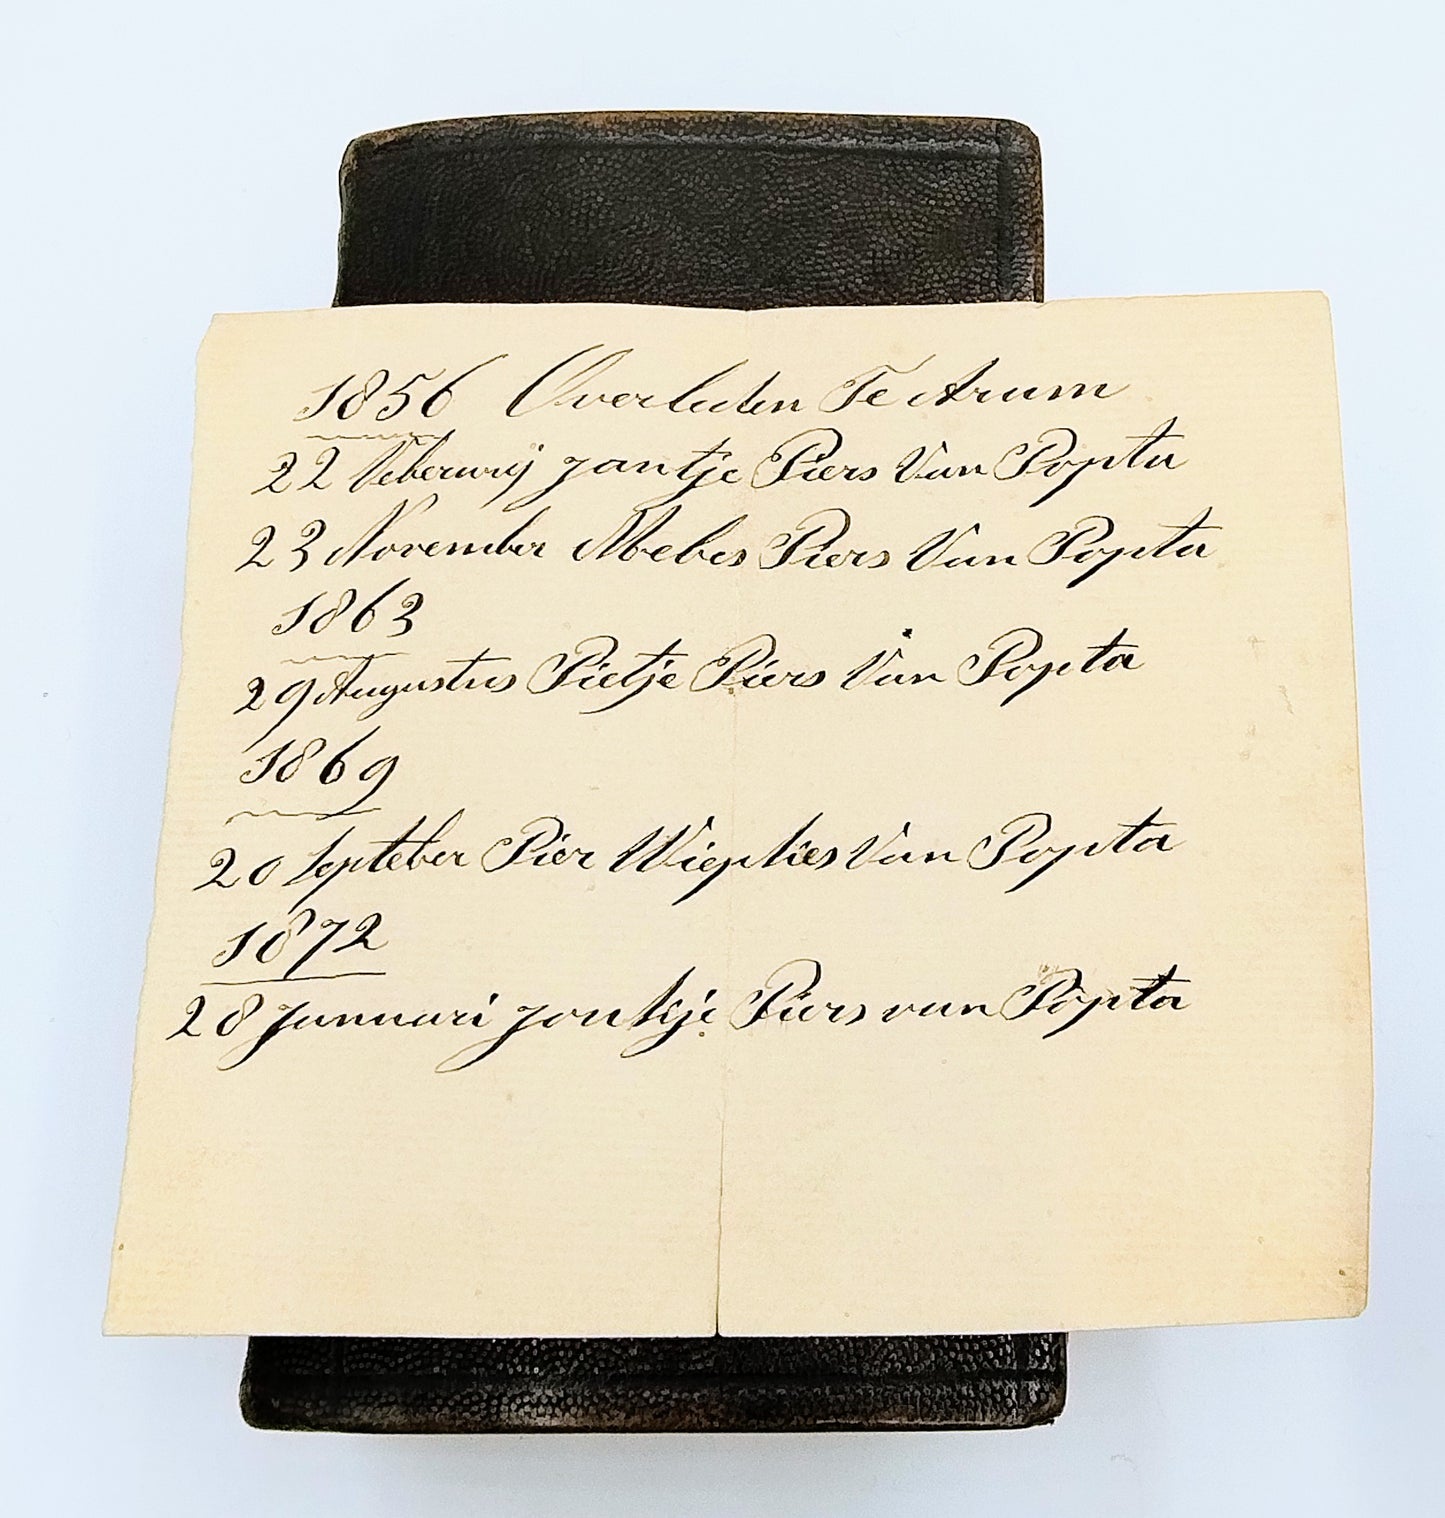 1856 Overleden Te Arum
22 Veberwarij jantje Piers Van Popta
23 November Mebes Piers Van Popta
1863
29 Augustus Pietje Piers Van Popta
1869
20 Septeber Pier Wiepkies Van Popta
1872
28 Januuari jontkje Piers van Popta